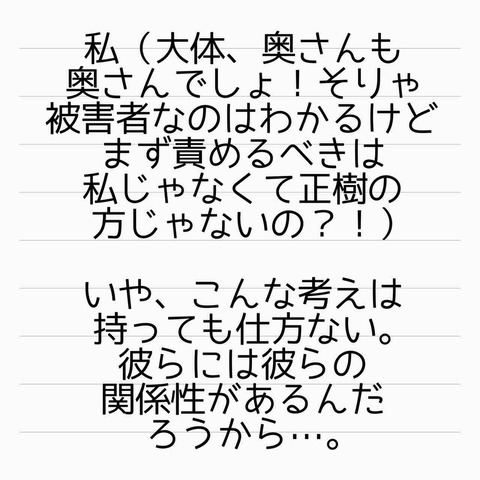 私（大体、奥さんも
奥さんでしょ！そりゃ
被害者なのはわかるけど
まず責めるべきは
私じゃなくて正樹の
方じゃないの？！）
いや、こんな考えは
持っても仕方ない。
彼らには彼らの
関係性があるんだ
ろうから…。